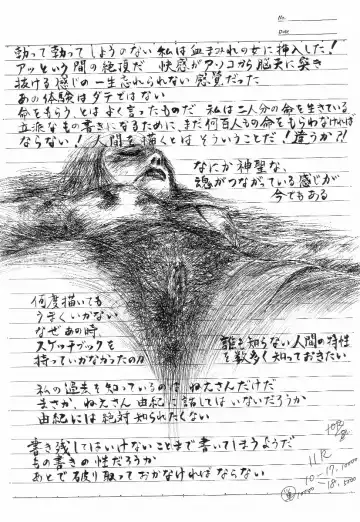 No.
Date
勃って勃ってしようのない私は血まみれの女に挿入した!
アッという間の絶頂だ 快感がアソコから脳天に突き
抜ける感じの一生忘れられない感覚だった
あの体験はダテではない
命をもらう、とはよく言ったものだ 私は二人分の命を生きている
立派なもの書きになるために、まだ何百人もの命をもらわなければ
ならない!人間を描くとはそういうことだ!違うか?!
なにか神聖な、
魂がつながっている感じが
今でもある
何度描いても
うまくいかない
なぜあの時、
スケッチブックを
持っていかなかったのか
誰も知らない人間の特性
を数多く知っておきたい
私の過去を知っているのはねえさんだけだ
まさか、ねえさん 由紀に話してはいないだろうか
由紀には絶対知られたくない
書き残してはいけないことまで書いてしまうようだ
もの書きの性だろうか
あとで破り取っておかなければならない